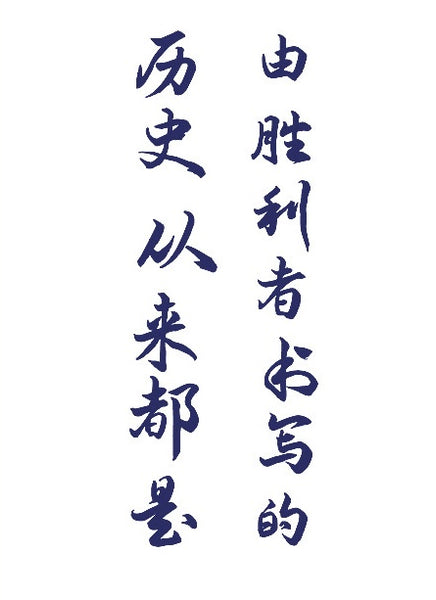 历史从来都是
由胜利者书写的